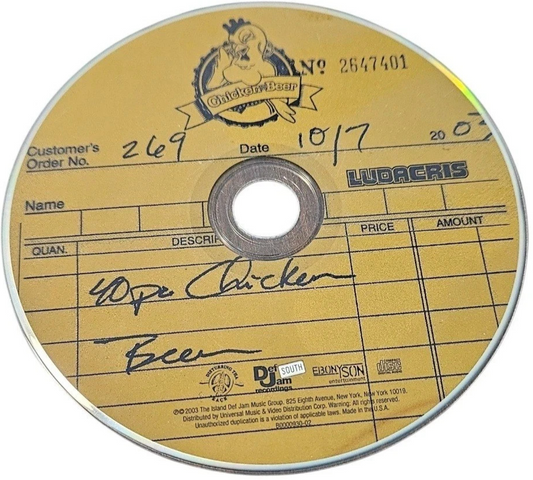 Chicken-n-Beer
Nº 2647401
Customer's Order No. 269 Date 10/7 2003
LUDACRIS
Name
QUAN. DESCRIP PRICE AMOUNT
40pc Chicken
Beer
DISTURBING THA PEACE
Def Jam recordings SOUTH EBONYSON entertainment COMPACT disc DIGITAL AUDIO
℗© 2003 The Island Def Jam Music Group, 825 Eighth Avenue, New York, New York 10019.
Distributed by Universal Music & Video Distribution Corp. Warning: All rights reserved.
Unauthorized duplication is a violation of applicable laws. Made in the U.S.A.
B0000930-02